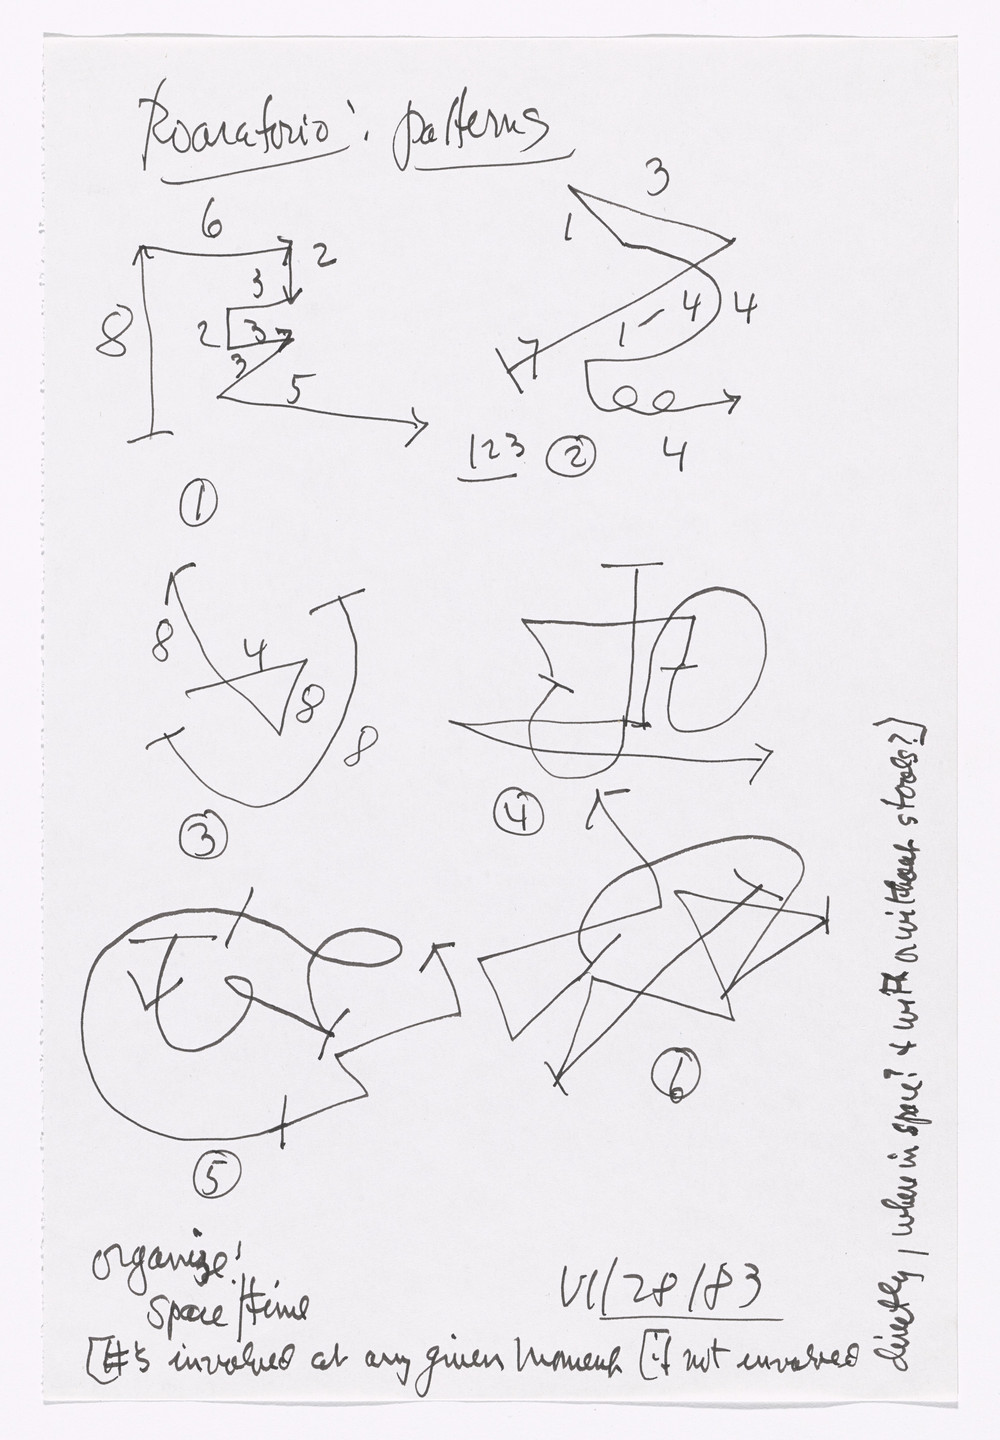 Roaratorio: patterns
6
2
3
8
2
3
3
5
1
3
1
1 - 4
4
7
4
123
2
8
4
8
8
3
4
5
6
organize:
space/time
VI/28/83
[#'s involved at any given moment [if not involved
directly, where in space? & with or without stools?]